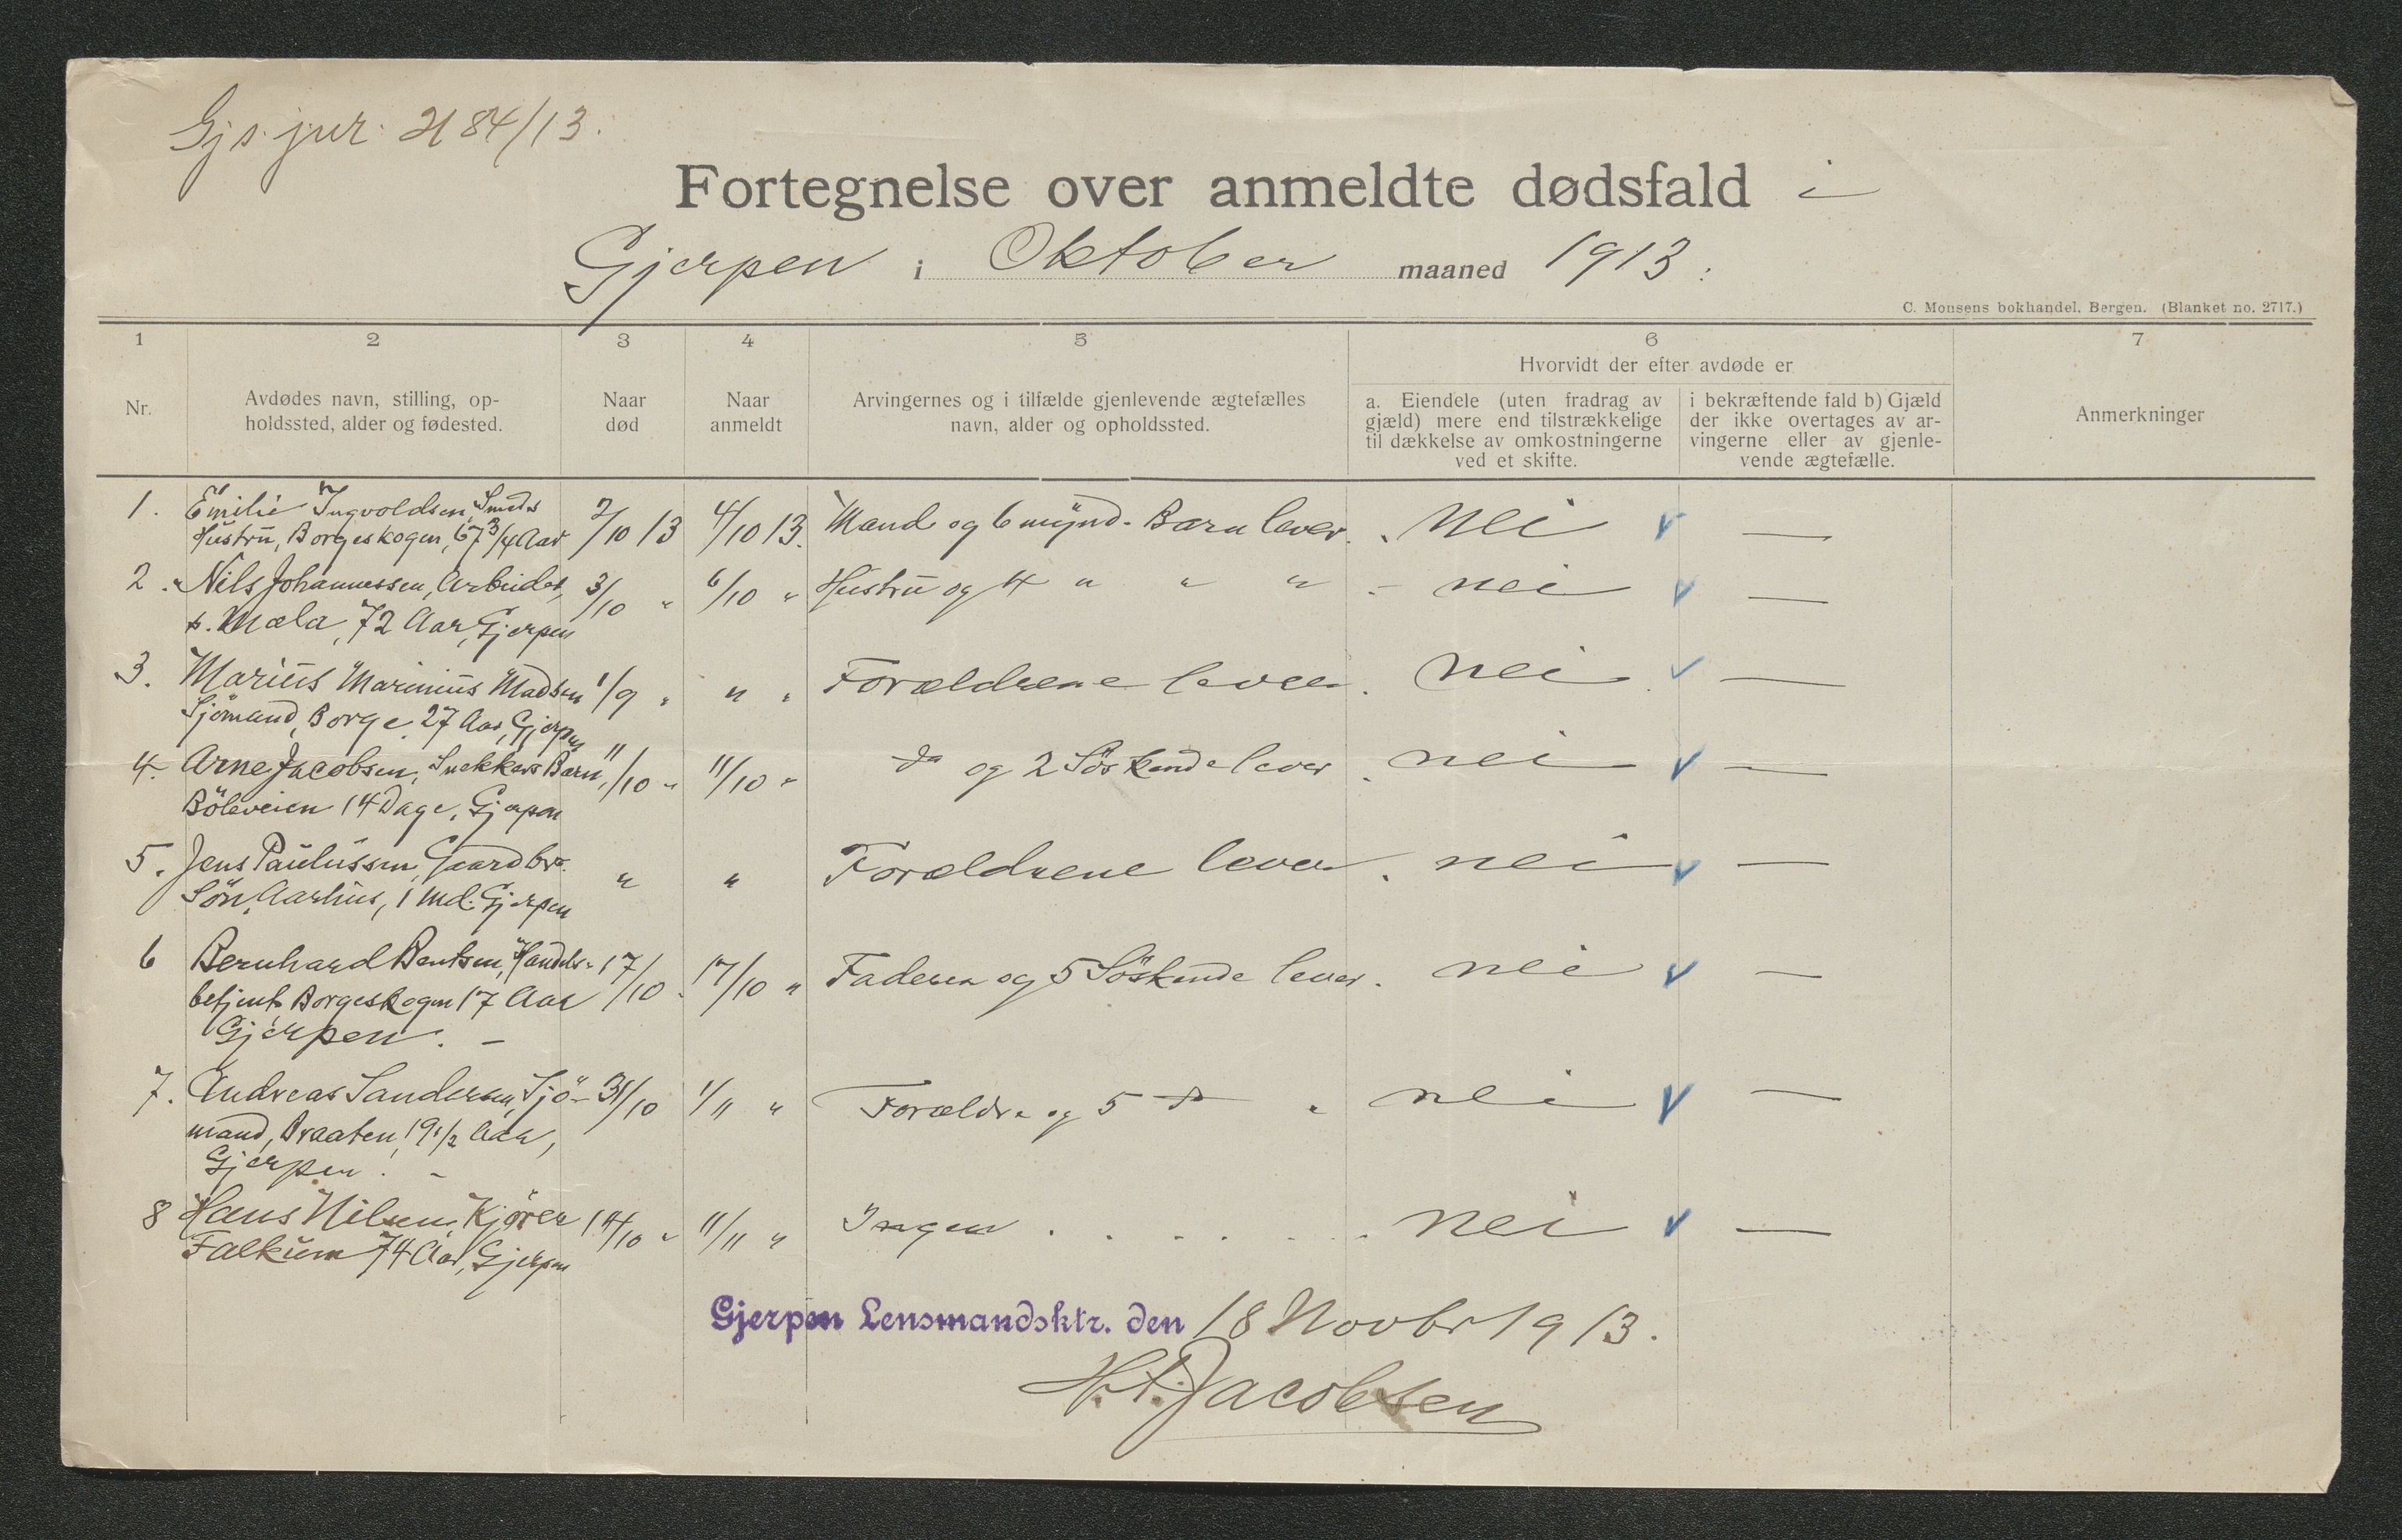 Gjs. jur. 2184/13.
Fortegnelse over anmeldte dødsfald i
Gjerpen i Oktober maaned 1913.
C. Monsens bokhandel, Bergen. (Blanket no. 2717.)
1 2 3 4 5 6 7
Hvorvidt der efter avdøde er
Nr.
Avdødes navn, stilling, op-
holdssted, alder og fødested.
Naar
død
Naar
anmeldt
Arvingernes og i tilfælde gjenlevende ægtefælles
navn, alder og opholdssted.
a. Eiendele (uten fradrag av
gjæld) mere end tilstrækkelige
til dækkelse av omkostningerne
ved et skifte.
i bekræftende fald b) Gjæld
der ikke overtages av ar-
vingerne eller av gjenle-
vende ægtefælle.
Anmerkninger
1. Emilie Ingvoldsen, Smeds
Hustru, Borgeskogen, 67 3/4 Aar 2/10 13 4/10 13. Mand og 6 mynd. Barn lever. nei —
2. Nils Johannessen, Arbeider, 3/10 " 6/10 " Hustru og 4 " " " - nei —
s. Mæla, 72 Aar, Gjerpen
3. Marius Marinius Madsen 1/9 " " " Forældrene lever. nei —
Sjömand, Borge, 27 Aar, Gjerpen
4. Arne Jacobsen, Snekkers Barn, 11/10 " 11/10 " do og 2 Söskende lever. nei —
Böleveien 14 Dage, Gjerpen
5. Jens Paulussen, Gaardbr. " " Forældrene lever. nei —
Sön, Aarhus, 1 Md. Gjerpen
6 Bernhard Bentsen, Handels- 17/10 . 17/10 " Faderen og 5 Söskende lever. nei —
betjent, Borgeskogen 17 Aar
Gjerpen. -
7. Andreas Sandersen, Sjö- 31/10 1/11 " Forældre og 5 do " nei —
mand, Braaten, 19 1/2 Aar,
Gjerpen. -
8 Hans Nilsen, Kjörer 14/10 " 11/11 " Ingen . . . . . . nei —
Falkum 74 Aar, Gjerpen
Gjerpen Lensmandsktr. den 18 Novbr 1913.
H. A. Jacobsen